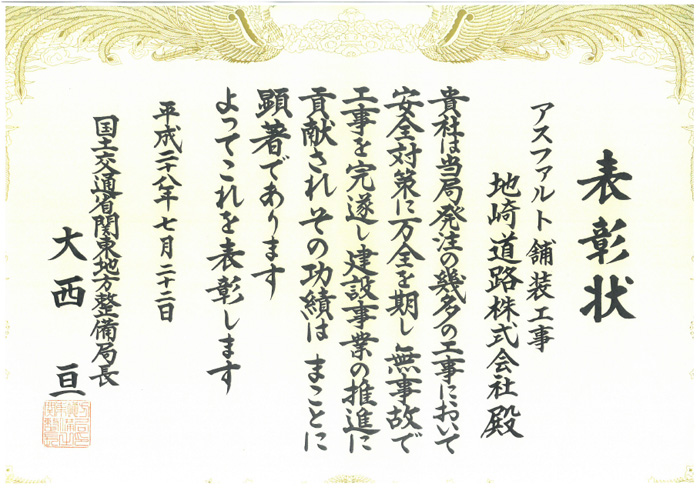 表彰状
アスファルト舗装工事
地崎道路株式会社 殿
貴社は当局発注の幾多の工事において
安全対策に万全を期し 無事故で
工事を完遂し 建設事業の推進に
貢献され その功績は まことに
顕著であります
よってこれを表彰します
平成二十八年 七月二十二日
国土交通省関東地方整備局長
大西 亘